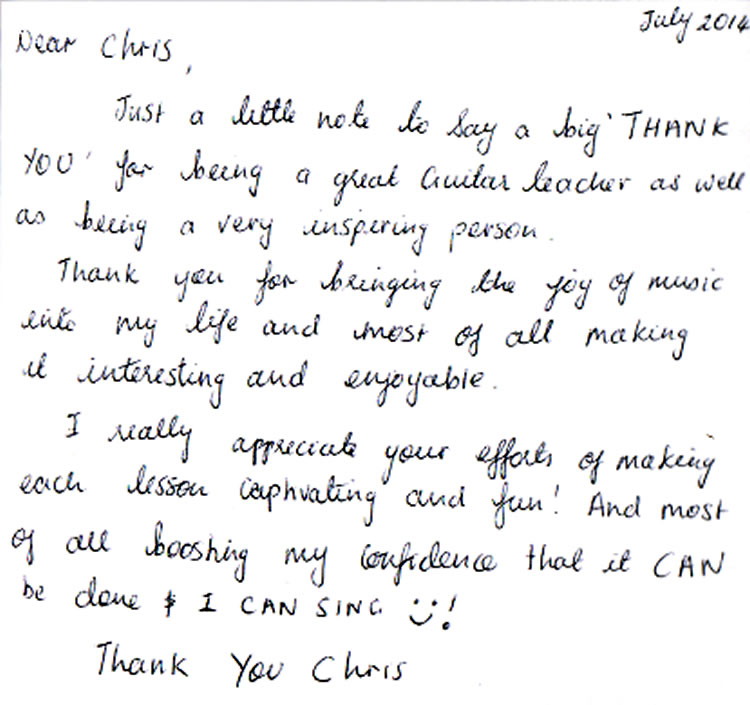 July 2014
Dear Chris,
Just a little note to say a big 'THANK
YOU' for being a great Guitar teacher as well
as being a very inspiring person.
Thank you for bringing the joy of music
into my life and most of all making
it interesting and enjoyable.
I really appreciate your efforts of making
each lesson captivating and fun! And most
of all boosting my confidence that it CAN
be done & I CAN SING :)!
Thank You Chris